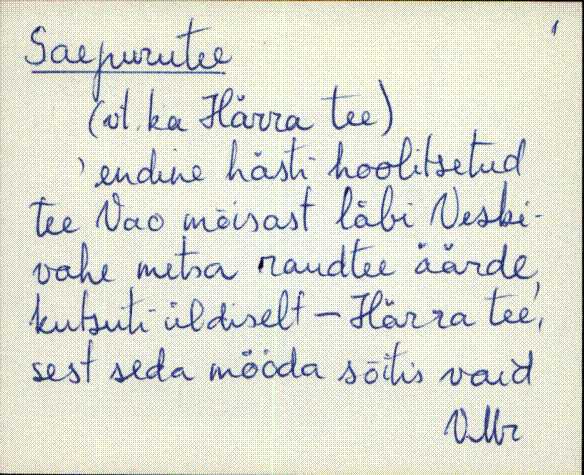 1
Saepurutee
(vt. ka Härra tee)
' endine hästi hoolitsetud
tee Vao mõisast läbi Veski-
vahe metsa raudtee äärde,
kutsuti üldiselt – Härra tee,
sest seda mööda sõitis vaid
VMr